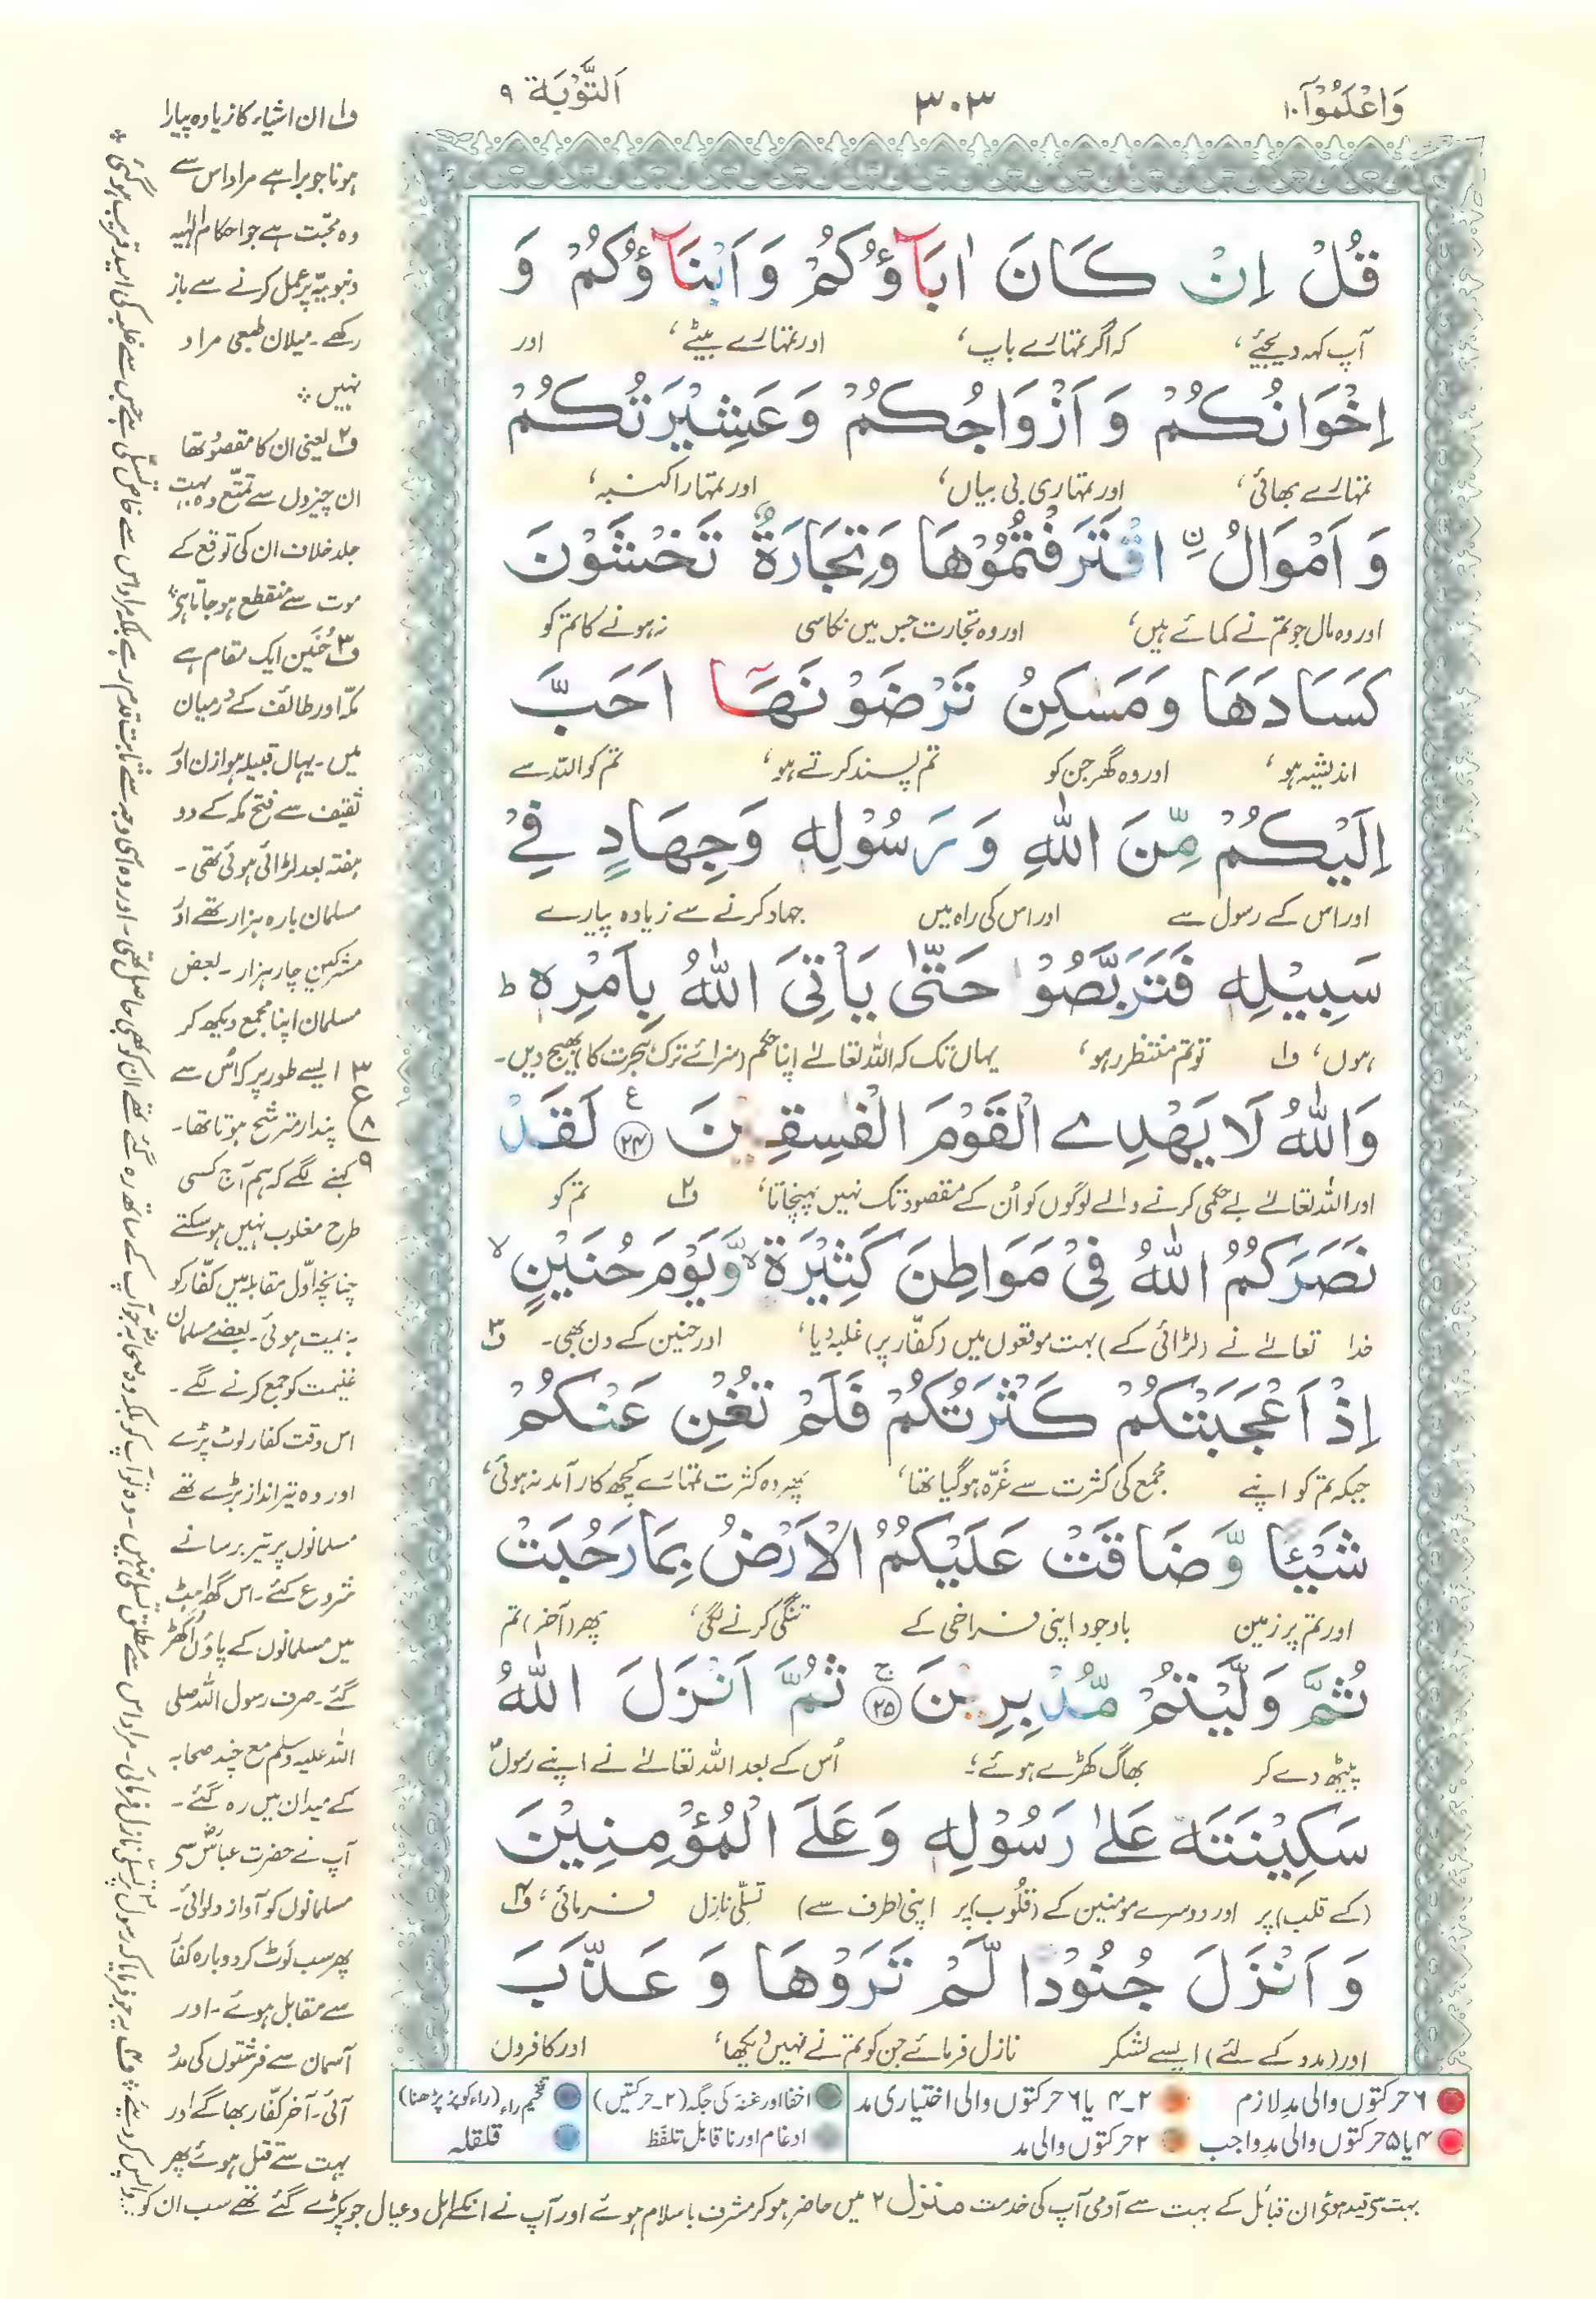 وَاعْلَمُوْٓا ۱۰
۳۰۳
اَلتَّوْبَة ۹
قُلْ اِنْ كَانَ اٰبَآؤُكُمْ وَاَبْنَآؤُكُمْ وَ
آپ کہہ دیجئے، کہ اگر تمہارے باپ، اور تمہارے بیٹے، اور
اِخْوَانُكُمْ وَ اَزْوَاجُكُمْ وَعَشِيْرَتُكُمْ
تمہارے بھائی، اور تمہاری بی بیاں، اور تمہارا کنبہ،
وَ اَمْوَالُ ِۨ اقْتَرَفْتُمُوْهَا وَتِجَارَةٌ تَخْشَوْنَ
اور وہ مال جو تم نے کمائے ہیں، اور وہ تجارت جس میں نکاسی نہ ہونے کا تم کو
كَسَادَهَا وَمَسٰكِنُ تَرْضَوْنَهَآ اَحَبَّ
اندیشہ ہو، اور وہ گھر جن کو تم پسند کرتے ہو، تم کو اللہ سے
اِلَيْكُمْ مِّنَ اللّٰهِ وَ رَسُوْلِهٖ وَجِهَادٍ فِيْ
اور اس کے رسول سے اور اس کی راہ میں جہاد کرنے سے زیادہ پیارے
سَبِيْلِهٖ فَتَرَبَّصُوْا حَتّٰى يَاْتِيَ اللّٰهُ بِاَمْرِهٖ ؕ
ہوں، ف۱ تو تم منتظر رہو، یہاں تک کہ اللہ تعالےٰ اپنا حکم (سزائے ترک ہجرت کا) بھیج دیں۔
وَاللّٰهُ لَا يَهْدِے الْقَوْمَ الْفٰسِقِيْنَ ۲۴ ع لَقَدْ
اور اللہ تعالےٰ بے حکمی کرنے والے لوگوں کو اُن کے مقصود تک نہیں پہنچاتا، ف۲ تم کو
نَصَرَكُمُ اللّٰهُ فِيْ مَوَاطِنَ كَثِيْرَةٍ ۙ وَّيَوْمَ حُنَيْنٍ ۙ
خدا تعالےٰ نے (لڑائی کے) بہت موقعوں میں (کفّار پر) غلبہ دیا، اور حنین کے دن بھی۔ ف۳
اِذْ اَعْجَبَتْكُمْ كَثْرَتُكُمْ فَلَمْ تُغْنِ عَنْكُمْ
جبکہ تم کو اپنے مجمع کی کثرت سے غرّہ ہوگیا تھا، پھر وہ کثرت تمہارے کچھ کار آمد نہ ہوئی،
شَيْـًٔا وَّضَاقَتْ عَلَيْكُمُ الْاَرْضُ بِمَا رَحُبَتْ
اور تم پر زمین باوجود اپنی فراخی کے تنگی کرنے لگی، پھر (آخر) تم
ثُمَّ وَلَّيْتُمْ مُّدْبِرِيْنَ ۲۵ ۚ ثُمَّ اَنْزَلَ اللّٰهُ
پیٹھ دے کر بھاگ کھڑے ہوئے؛ اُس کے بعد اللہ تعالےٰ نے اپنے رسولؐ
سَكِيْنَتَهٗ عَلٰے رَسُوْلِهٖ وَعَلَے الْمُؤْمِنِيْنَ
(کے قلب) پر اور دوسرے مومنین کے (قلُوب) پر اپنی (طرف سے) تسلّی نازل فرمائی، ف۴
وَ اَنْزَلَ جُنُوْدًا لَّمْ تَرَوْهَا وَ عَذَّبَ
اور (مدد کے لئے) ایسے لشکر نازل فرمائے جن کو تم نے نہیں دیکھا، اور کافروں
ف۱ ان اشیاء کا زیادہ پیارا
ہونا جو برا ہے مراد اس سے
وہ محبّت ہے جو احکام الٰہیہ
و نبویّہ پر عمل کرنے سے باز
رکھے۔ میلان طبعی مراد
نہیں *
ف۲ یعنی ان کا مقصود تھا
ان چیزوں سے تمتّع وہ بہت
جلد خلاف ان کی توقع کے
موت سے منقطع ہو جاتا ہے *
ف۳ حُنَین ایک مقام ہے
مکّہ اور طائف کے درمیان
میں۔ یہاں قبیلہ ہوازن اور
ثقیف سے فتح مکہ کے دو
ہفتہ بعد لڑائی ہوئی تھی۔
مسلمان بارہ ہزار تھے اور
مشرکین چار ہزار۔ بعض
مسلمان اپنا مجمع دیکھ کر
ایسے طور پر کہ اُس سے
پندار مترشح ہوتا تھا۔
کہنے لگے کہ ہم آج کسی
طرح مغلوب نہیں ہو سکتے
چنانچہ اوّل مقابلہ میں کفّار کو
ہزیمت ہوئی۔ بعضے مسلمان
غنیمت کو جمع کرنے لگے۔
اس وقت کفار لوٹ پڑے
اور وہ تیر انداز بڑے تھے
مسلمانوں پر تیر برسانے
شروع کئے۔ اس گھبراہٹ
میں مسلمانوں کے پاؤں اُکھڑ
گئے۔ صرف رسول اللہ صلی
اللہ علیہ وسلم مع چند صحابہ
کے میدان میں رہ گئے۔
آپ نے حضرت عباسؓ سے
مسلمانوں کو آواز دلوائی۔
پھر سب لَوٹ کر دوبارہ کفّار
سے مقابل ہوئے۔ اور
آسمان سے فرشتوں کی مدد
آئی۔ آخر کفّار بھاگے اور
بہت سے قتل ہوئے پھر
۳
ع
۸
۹
بہت سے قید ہوئی ان قبائل کے بہت سے آدمی آپ کی خدمت میں حاضر ہو کر مشرف باسلام ہوئے اور آپ نے انکے اہل و عیال جو پکڑے گئے تھے سب ان کو
منزل ۲
واپس کر دیئے *
۶ حرکتوں والی مدِ لازم
۲ـ۴ یا ۶ حرکتوں والی اختیاری مد
اخفا اور غنہ کی جگہ (۲ـ حرکتیں)
تفخیم راء (راء کو پُر پڑھنا)
۴ یا ۵ حرکتوں والی مدِ واجب
۲ حرکتوں والی مد
ادغام اور ناقابلِ تلفّظ
قلقلہ